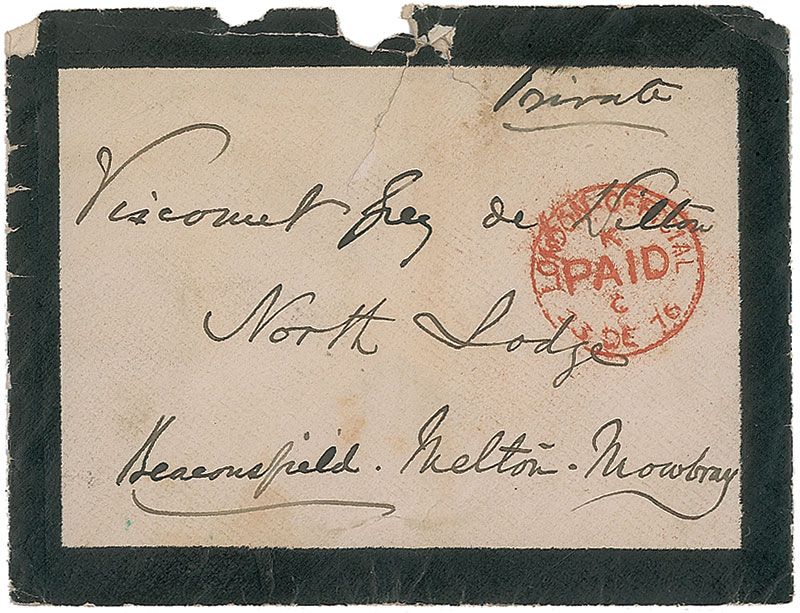 Private
Viscount Grey de Wilton
LONDON OFFICIAL
K
PAID
C
DE 76
North Lodge
Beaconsfield. Melton-Mowbray